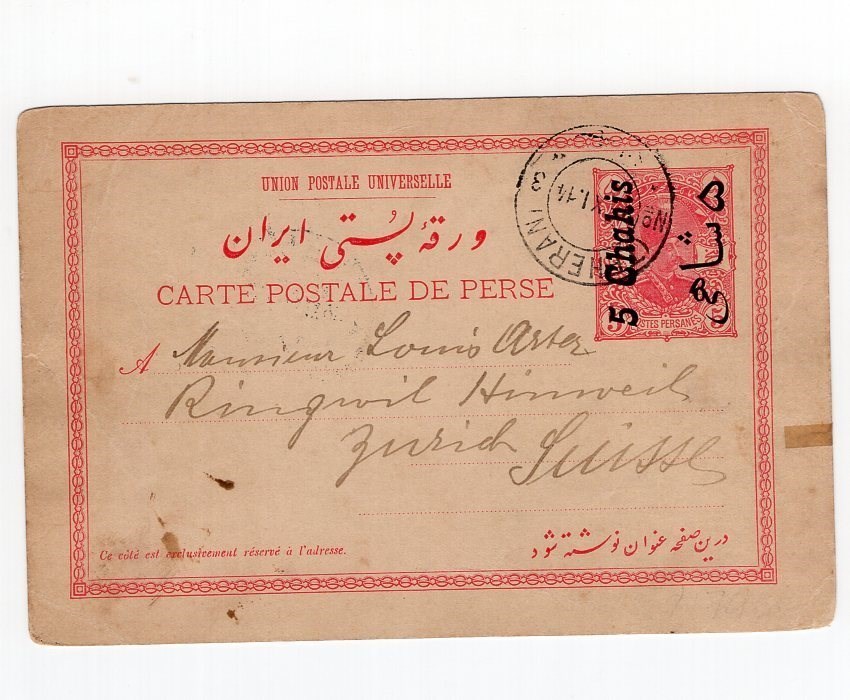 UNION POSTALE UNIVERSELLE
ورقهٔ پُستی ایران
CARTE POSTALE DE PERSE
5 Chahis
۵ شاهی
TEHERAN
3
XI.14
No
POSTES PERSANES
5
A Monsieur Louis Arter
Ringwil Hinweil
Zürich Suisse
Ce côté est exclusivement réservé à l'adresse.
درین صفحه عنوان نوشته شود